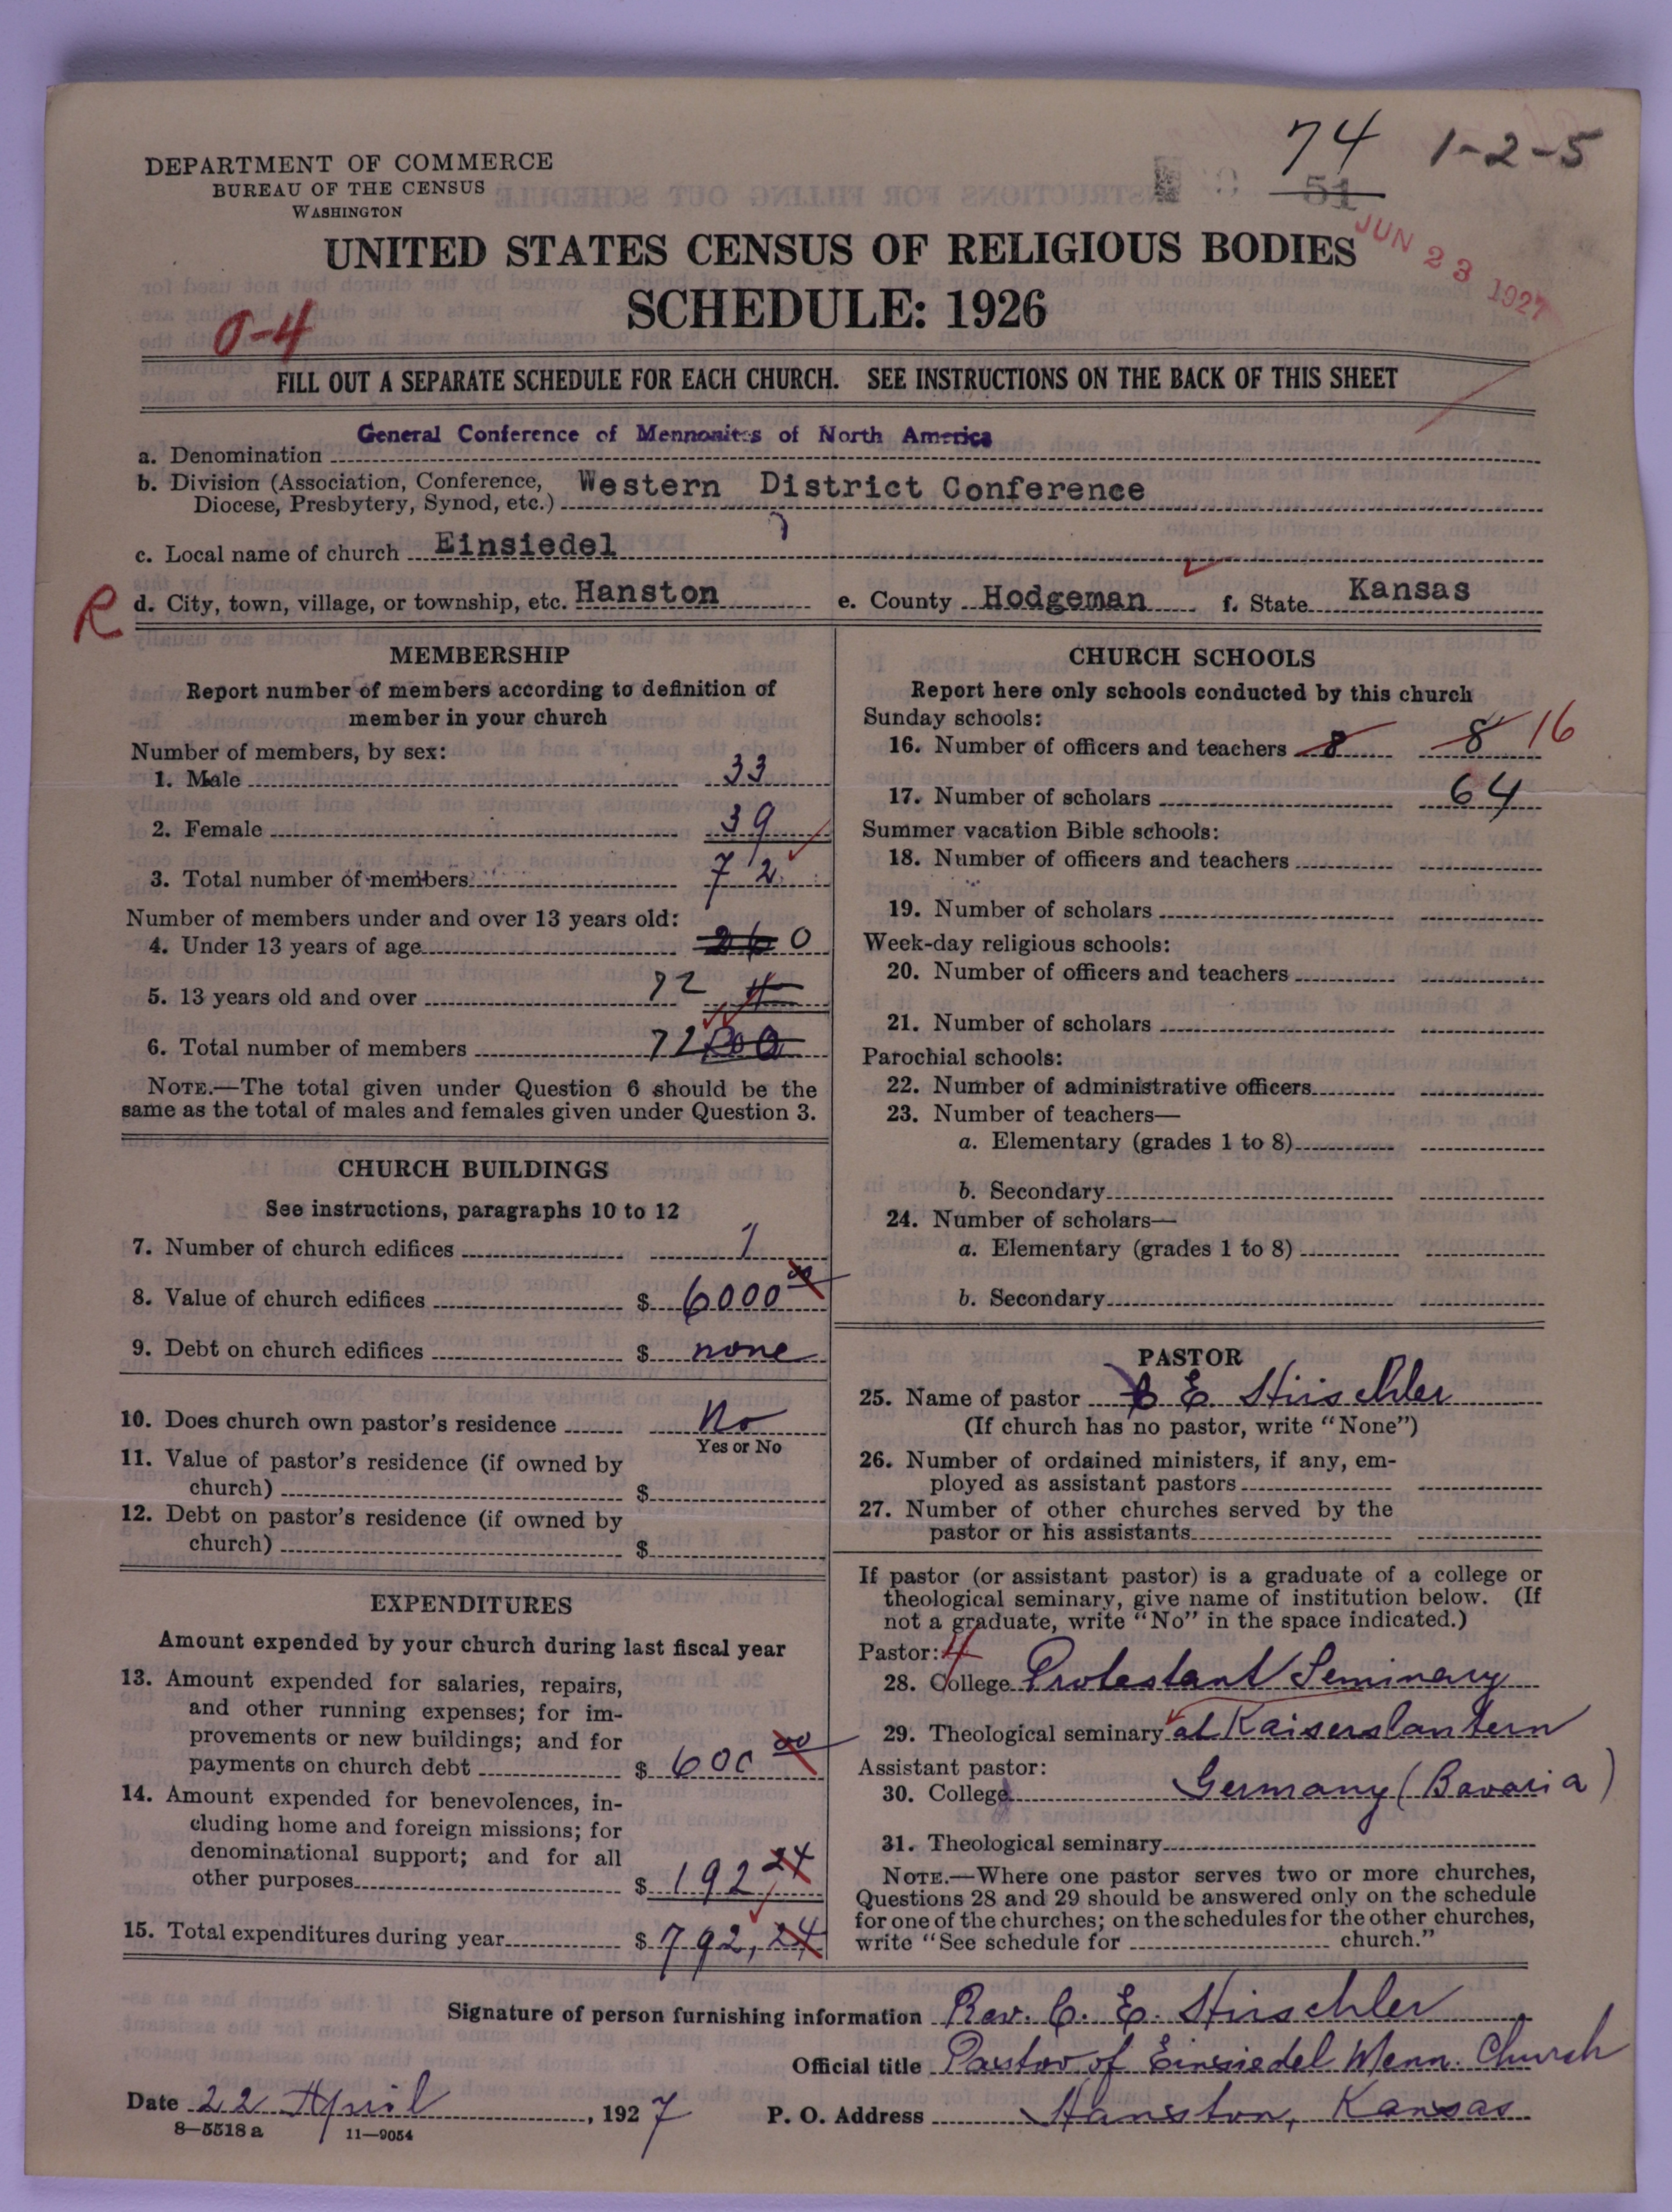 74 1-2-5
51
JUN 23 1927
DEPARTMENT OF COMMERCE
BUREAU OF THE CENSUS
WASHINGTON
UNITED STATES CENSUS OF RELIGIOUS BODIES
SCHEDULE: 1926
0-4
FILL OUT A SEPARATE SCHEDULE FOR EACH CHURCH. SEE INSTRUCTIONS ON THE BACK OF THIS SHEET
a. Denomination General Conference of Mennonites of North America
b. Division (Association, Conference, Diocese, Presbytery, Synod, etc.) Western District Conference
c. Local name of church Einsiedel
R d. City, town, village, or township, etc. Hanston e. County Hodgeman f. State Kansas
MEMBERSHIP
Report number of members according to definition of
member in your church
Number of members, by sex:
1. Male 33
2. Female 39
3. Total number of members 72
Number of members under and over 13 years old:
4. Under 13 years of age 0
5. 13 years old and over 72
6. Total number of members 72
NOTE.—The total given under Question 6 should be the
same as the total of males and females given under Question 3.
CHURCH BUILDINGS
See instructions, paragraphs 10 to 12
7. Number of church edifices 1
8. Value of church edifices $ 6000 00
9. Debt on church edifices $ none
10. Does church own pastor's residence No
Yes or No
11. Value of pastor's residence (if owned by
church) $
12. Debt on pastor's residence (if owned by
church) $
EXPENDITURES
Amount expended by your church during last fiscal year
13. Amount expended for salaries, repairs,
and other running expenses; for im-
provements or new buildings; and for
payments on church debt $ 600 00
14. Amount expended for benevolences, in-
cluding home and foreign missions; for
denominational support; and for all
other purposes $ 192 24
15. Total expenditures during year $ 792, 24
CHURCH SCHOOLS
Report here only schools conducted by this church
Sunday schools:
16. Number of officers and teachers 8 8 16
17. Number of scholars 64
Summer vacation Bible schools:
18. Number of officers and teachers
19. Number of scholars
Week-day religious schools:
20. Number of officers and teachers
21. Number of scholars
Parochial schools:
22. Number of administrative officers
23. Number of teachers—
a. Elementary (grades 1 to 8)
b. Secondary
24. Number of scholars—
a. Elementary (grades 1 to 8)
b. Secondary
PASTOR
25. Name of pastor C E Hirschler
(If church has no pastor, write "None")
26. Number of ordained ministers, if any, em-
ployed as assistant pastors
27. Number of other churches served by the
pastor or his assistants
If pastor (or assistant pastor) is a graduate of a college or
theological seminary, give name of institution below. (If
not a graduate, write "No" in the space indicated.)
Pastor: 4
28. College Protestant Seminary
29. Theological seminary at Kaiserslautern
Assistant pastor:
30. College Germany (Bavaria)
31. Theological seminary
NOTE.—Where one pastor serves two or more churches,
Questions 28 and 29 should be answered only on the schedule
for one of the churches; on the schedules for the other churches,
write "See schedule for church."
Signature of person furnishing information Rev. C. E. Hirschler
Official title Pastor of Einsiedel Menn. Church
Date 22 April, 1927 P. O. Address Hanston, Kansas
8—5518 a 11—9054